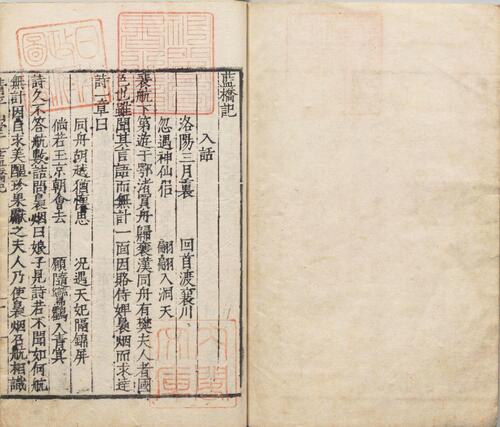 藍橋記
入話
洛陽三月裏 回首渡襄川
忽遇神仙侶 翩翩入洞天
裴航下第遊于鄂渚買舟歸襄漢同舟有樊夫人者國
色也雖聞其言語而無計一面因賂侍婢裊烟而求達
詩一章曰
同舟胡越猶懷思 況遇天妃隔錦屏
倘若玉京朝會去 願隨鸞鶴入青冥
詩久不答航數詰問裊烟曰娘子見詩若不聞如何航
無計因自求美醞珍果獻之夫人乃使裊烟召航相識